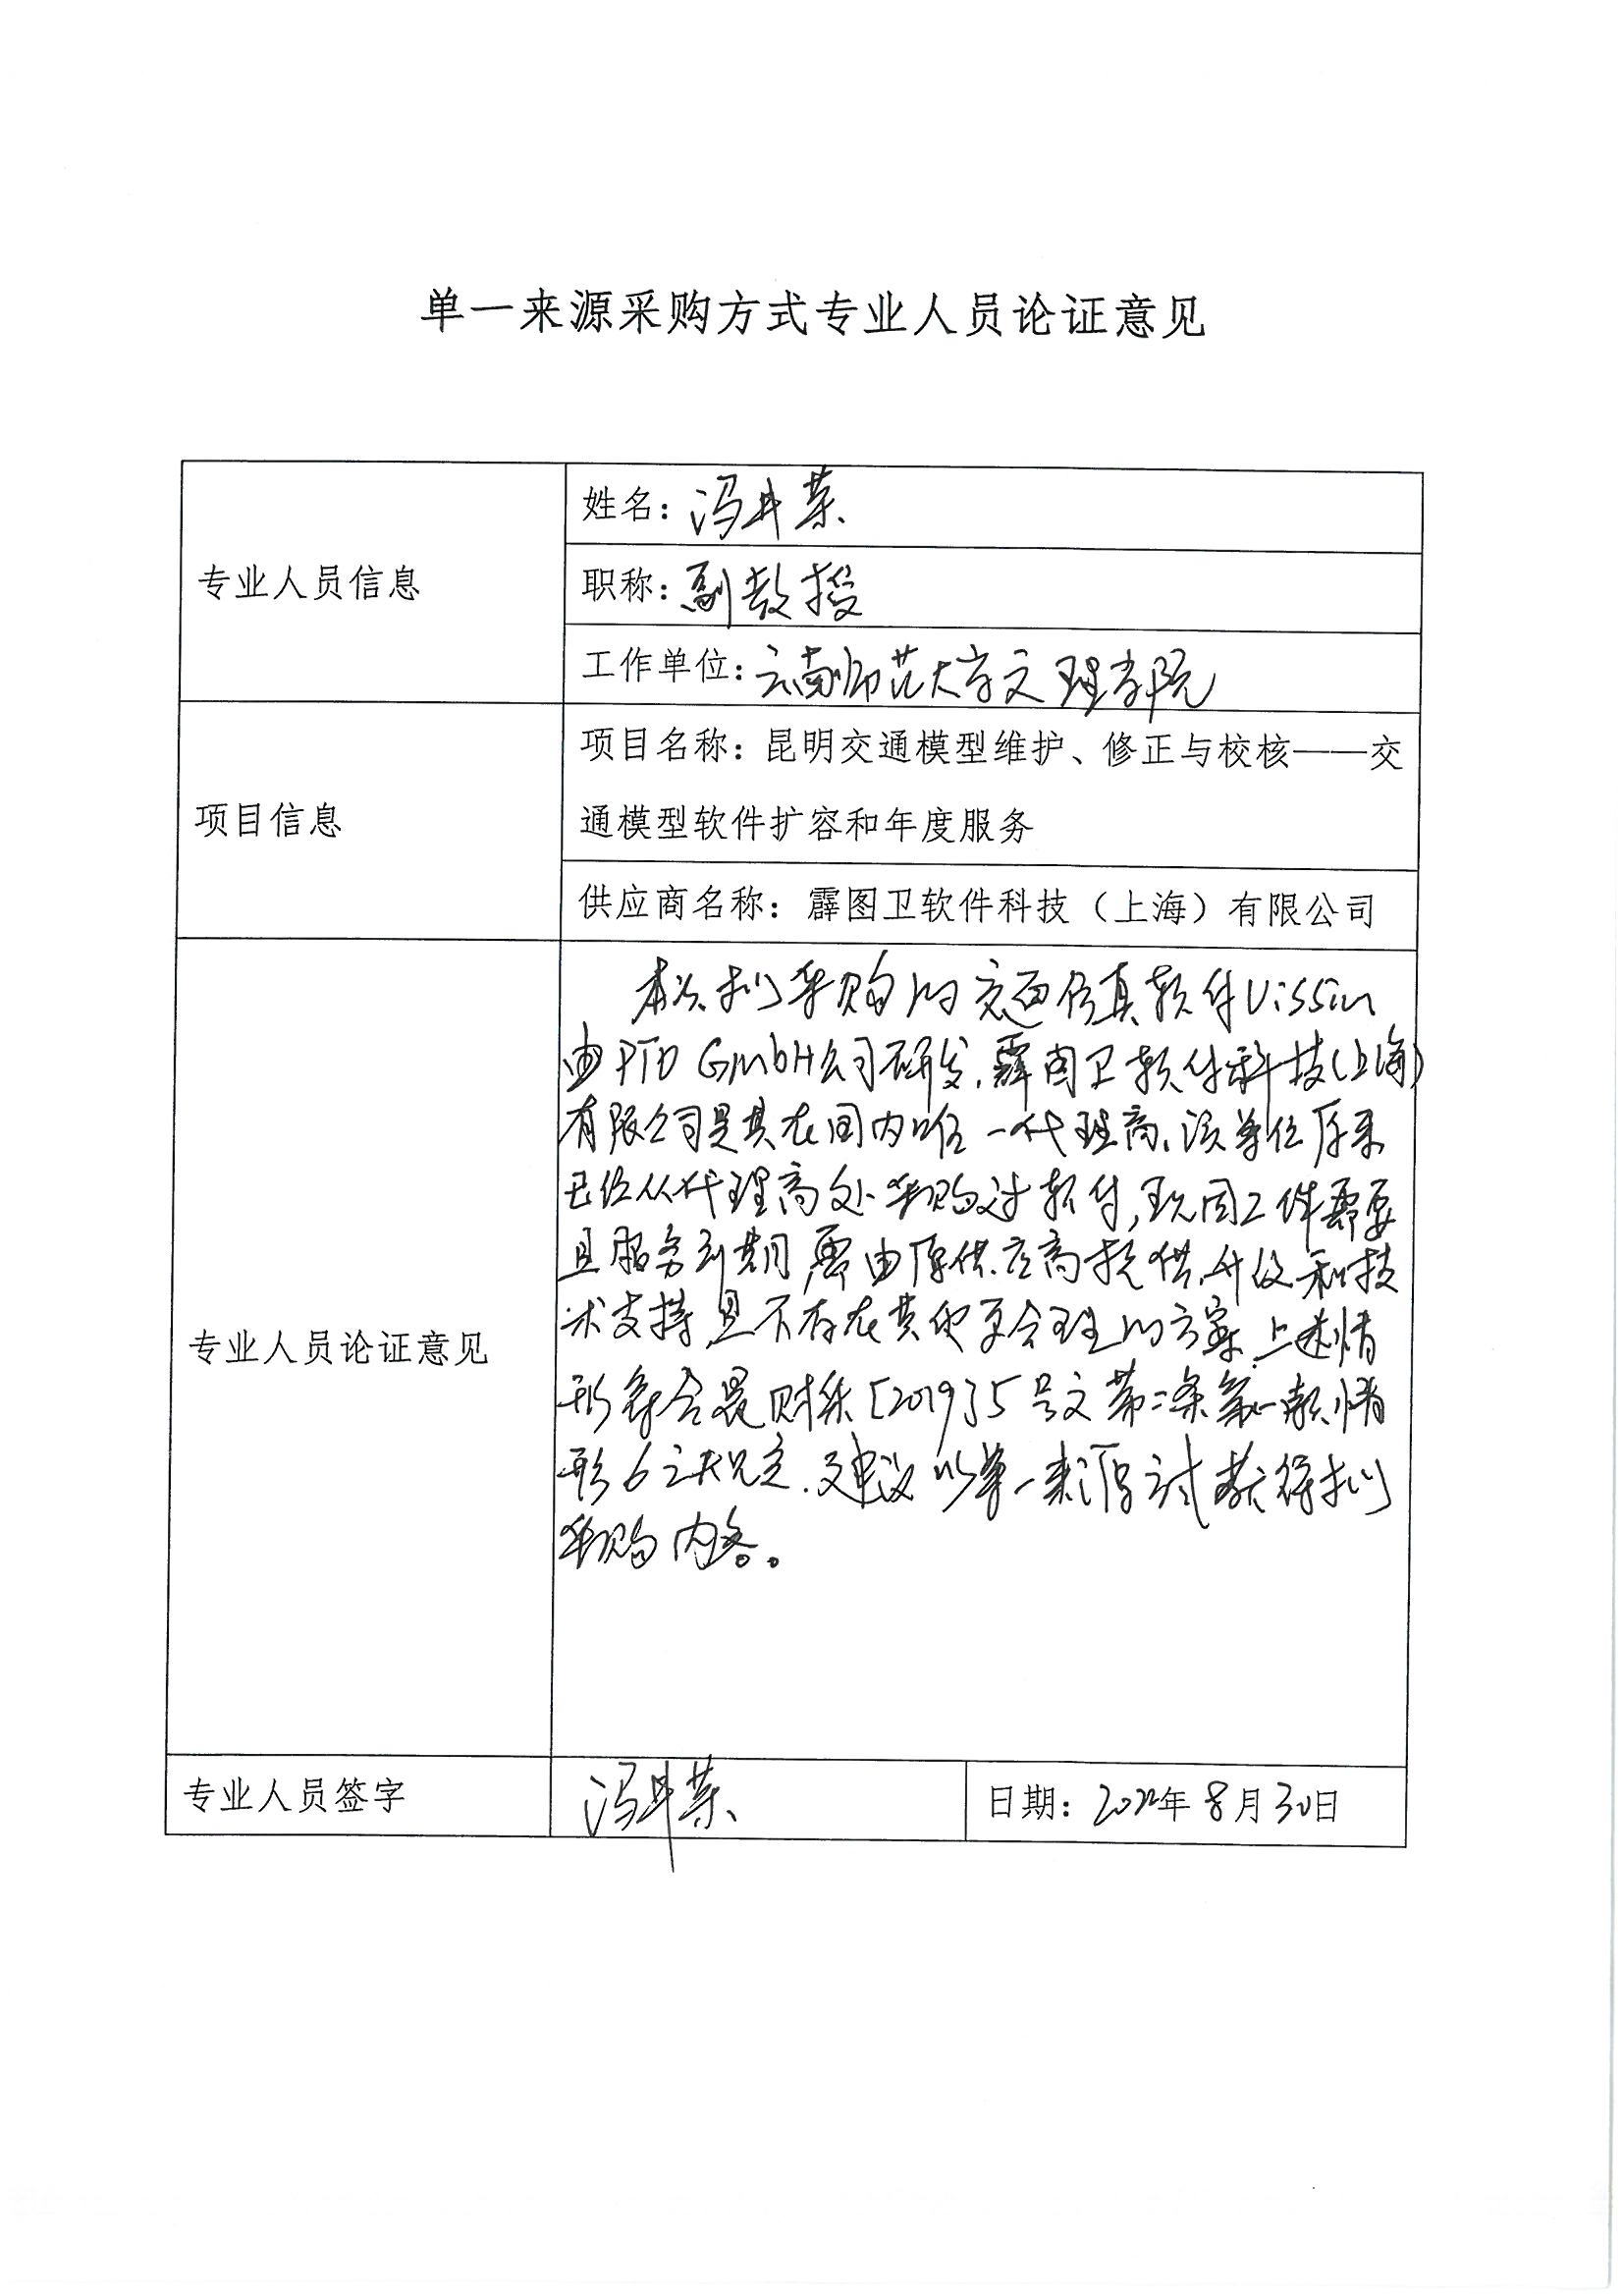 单一来源采购方式专业人员论证意见
专业人员信息
姓名：冯井荣
职称：副教授
工作单位：云南师范大学文理学院
项目信息
项目名称：昆明交通模型维护、修正与校核——交
通模型软件扩容和年度服务
供应商名称：霹图卫软件科技（上海）有限公司
专业人员论证意见
本次拟采购的交通仿真软件Vissim
由PTV GmbH公司研发，霹图卫软件科技(上海)
有限公司是其在国内唯一代理商，该单位原来
已经从代理商处采购过软件，现因工作需要
且服务到期，需由原供应商提供升级和技
术支持，且不存在其他更合理的方案，上述情
形符合昆财采[2019]5号文第二条第一款情
形6之规定，建议以单一来源方式获得拟
采购内容。
专业人员签字
冯井荣
日期：2022年8月30日